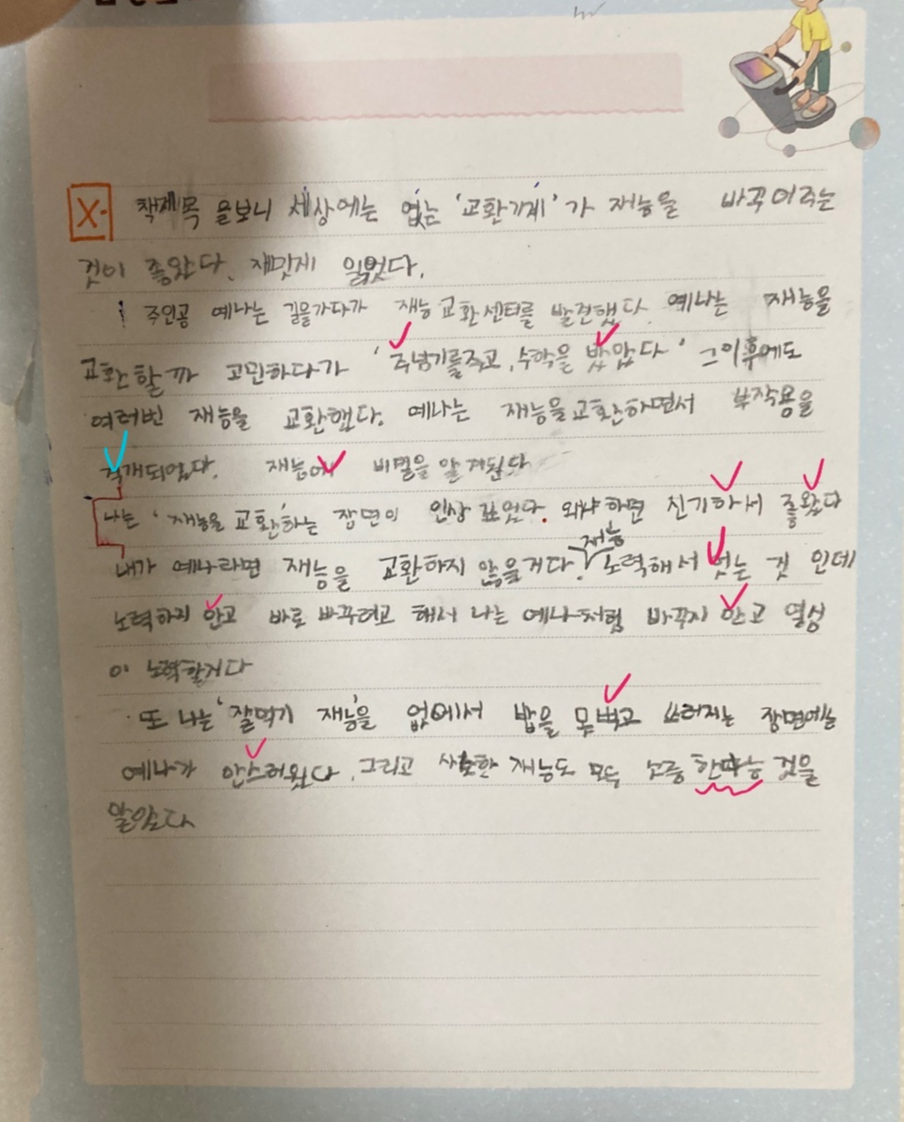 X-
책제목 을보니 세상에는 없는 '교환기계'가 재능을 바꾸어주는
것이 좋았다. 재밋게 읽었다.
주인공 예나는 길을가다가 재능교환센터를 발견했다. 예나는 재능을
교환할까 고민하다가 '줄넘기를주고, 수학을 받았다' 그이후에도
여러번 재능을 교환했다. 예나는 재능을교환하면서 부작용을
되었다. 재능에 비밀을 알게된다
나는 '재능을 교환'하는 장면이 인상 깊었다. 왜냐하면 신기하서 좋왔다
내가 예나라면 재능을 교환하지 않을거다. 재능 노력해서 엇는 것 인데
노력하지 안고 바로 바꾸려고 해서 나는 예나처럼 바꾸지 안고 열심
이 노력할거다
또 나는 '잘먹기 재능'을 없에서 밥을 못 먹고 쓰러지는 장면에는
예나가 안스러웠다. 그리고 사소한 재능도 모두 소중 한다는 것을
알았다